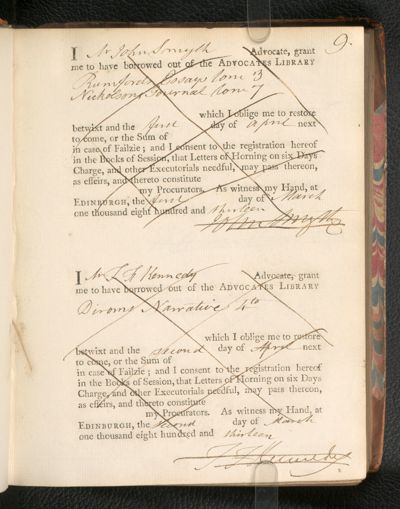 9.
I Mr John Smyth Advocate, grant
me to have borrowed out of the ADVOCATES LIBRARY
Rumfords Essays tom 3
Nicholsons Journal tom 7
which I oblige me to restore
betwixt and the first day of April next
to come, or the Sum of
in case of Failzie; and I consent to the registration hereof
in the Books of Session, that Letters of Horning on six Days
Charge, and other Executorials needful, may pass thereon,
as effeirs, and thereto constitute
my Procurators. As witness my Hand, at
EDINBURGH, the first day of March
one thousand eight hundred and thirteen
John Smyth
I Mr T F Kennedy Advocate, grant
me to have borrowed out of the ADVOCATES LIBRARY
Diroms Narrative 4to
which I oblige me to restore
betwixt and the second day of April next
to come, or the Sum of
in case of Failzie; and I consent to the registration hereof
in the Books of Session, that Letters of Horning on six Days
Charge, and other Executorials needful, may pass thereon,
as effeirs, and thereto constitute
my Procurators. As witness my Hand, at
EDINBURGH, the second day of March
one thousand eight hundred and thirteen
T F Kennedy